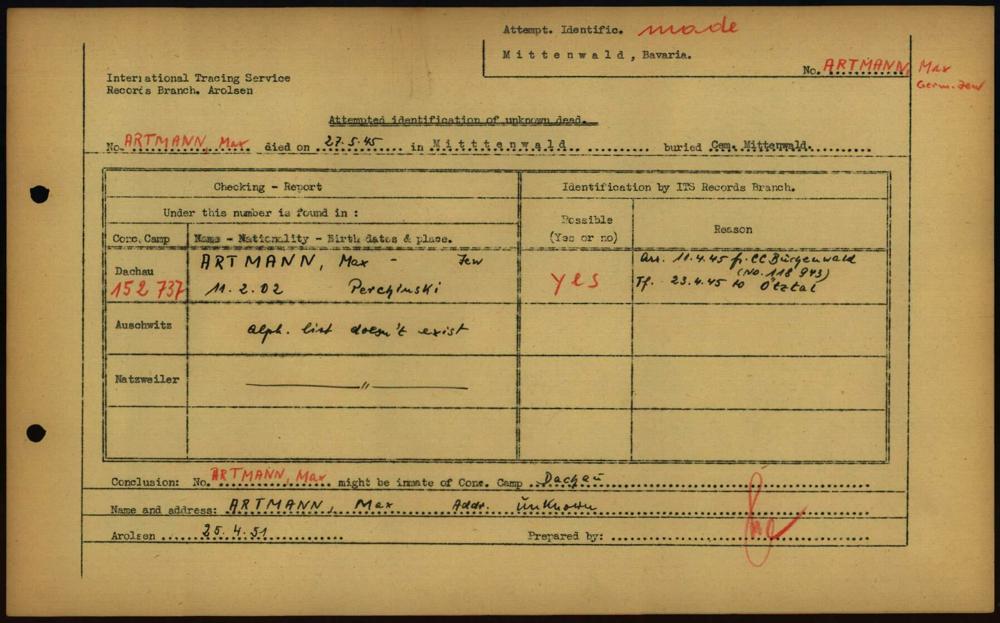 Attempt. Identific. made
Mittenwald, Bavaria.
No. ARTMANN, Max
Germ. Jew
International Tracing Service
Records Branch. Arolsen
Attempted identification of unknown dead.
No. ARTMANN, Max died on 27.5.45 in Mitttenwald buried Cem. Mittenwald.
Checking - Report
Identification by ITS Records Branch.
Under this number is found in :
Possible
(Yes or no)
Reason
Conc. Camp
Name - Nationality - Birth dates & place.
Dachau
152 737
ARTMANN, Max - Jew
11.2.02 Perchinski
yes
Arr. 11.4.45 fr. CC Bürgenwald
(No. 118 943)
Tf. 23.4.45 to Ötztal
Auschwitz
alph. list doesn't exist
Natzweiler
"
Conclusion: No. ARTMANN, Max might be inmate of Conc. Camp Dachau
Name and address: ARTMANN, Max Addr. unknown
Arolsen 25.4.51 Prepared by: